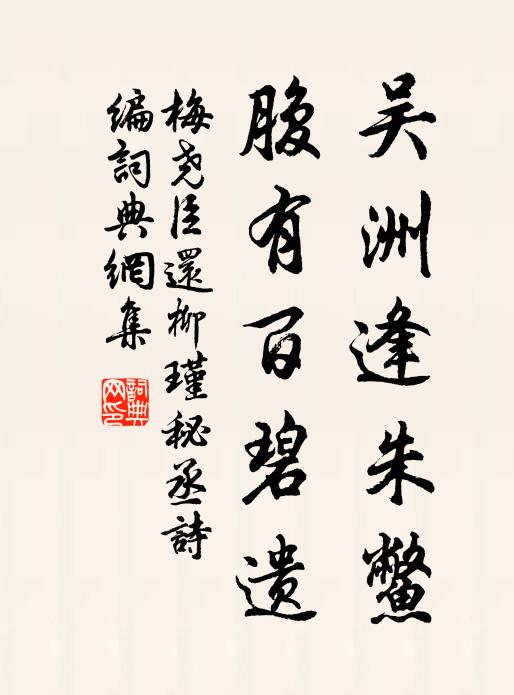 吴洲逢朱鳖
腹有百碧遗
梅尧臣還柳瑾秘丞詩
编詞典網集
詞典网印